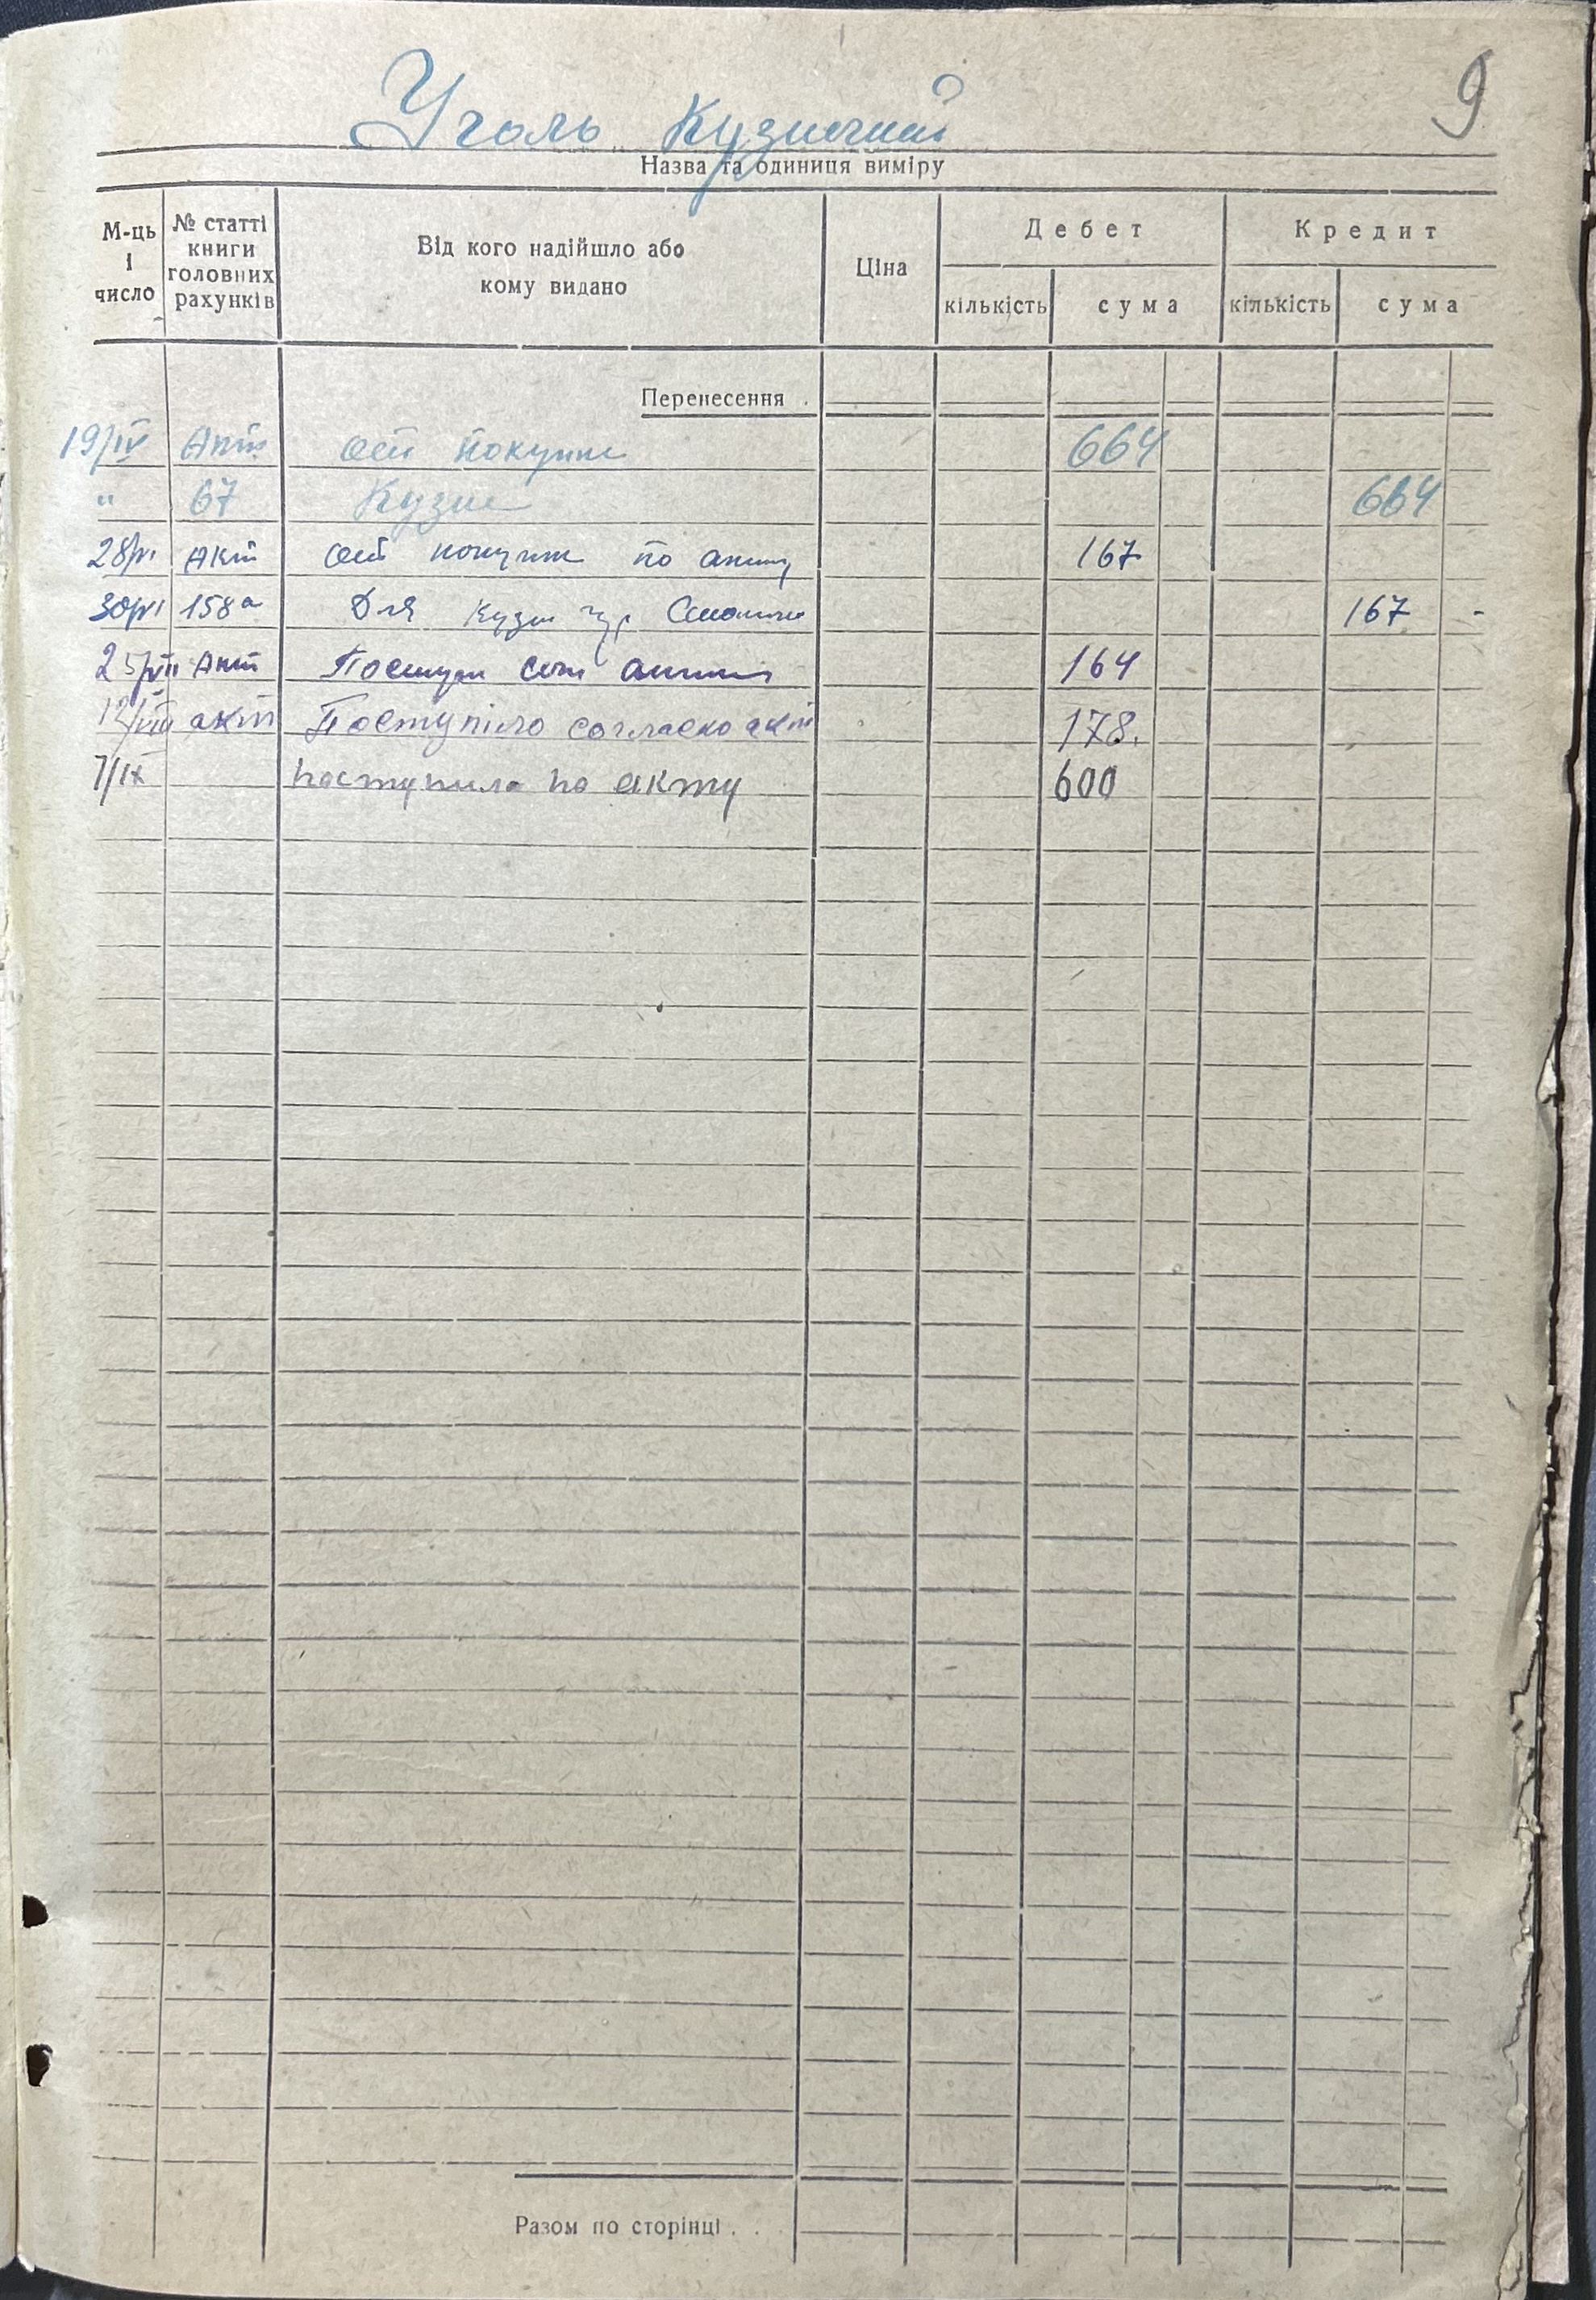 9
Уголь Кузнечный
Назва та одиниця виміру
М-ць і число
№ статті книги головних рахунків
Від кого надійшло або кому видано
Ціна
Дебет
Кредит
кількість сума кількість сума
Перенесення .
19/IV Акт покупки 664
" 67 Кузне 664
28/VI Акт покупки по акту 167
30/VI 158а Для Кузни 167 -
25/VII Акт Поступ 164
12/VIII акт Поступіло согласно акт 178.
7/IX поступила по акту 600
Разом по сторінці . .